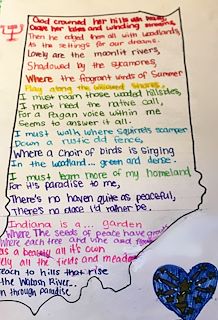 God crowned her hills with beauty,
Gave her lakes and winding streams,
Then He edged them all with woodlands
As the settings for our dreams.
Lovely are the moonlit rivers,
Shadowed by the sycamores,
Where the fragrant winds of Summer
Play along the willowed shores.
I must roam those wooded hillsides,
I must heed the native call,
For a Pagan voice within me
Seems to answer to it all.
I must walk where squirrels scamper
Down a rustic old fence,
Where a choir of birds is singing
In the woodland - green and dense.
I must learn more of my homeland
For it's paradise to me,
There's no haven quite as peaceful,
There's no place I'd rather be.
Indiana is a... garden
Where the seeds of peace have grown
Where each tree and vine and flower
as a beauty all it's own
ely all the fields and meadows
reach to hills that rise
the Wabash River...
n through paradise